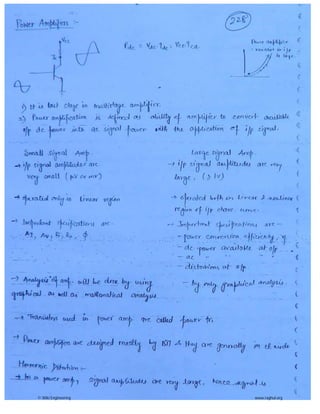 Power Amplifiers :-
228
Vcc
Pdc = Vdc Idc
Power amplifier
1) It is last stage in multistage amplifier.
2) Power amplification is defined as ability of amplifier to convert available
dc power into ac signal power with the application of i/p signal.
Small signal Amp.
Large signal Amp.
→ i/p signal amplitudes are
very small (μv or mv)
→ i/p signal amplitudes are very
large. (>1v)
→ operated only in Linear region
→ operated both in linear & nonlinear
region of
→ Important specifications are
→ Important specifications are -
- power conversion efficiency, η
- dc power available at o/p
- ac
- distortions at o/p
→ Analysis of amp. will be done by using
graphical as well as mathematical analysis
- by only graphical analysis
→ Transistors used in power amp are called power trs
→ Power amplifiers are designed mostly by BJT & they are generally in CE mode
Harmonic Distortion :-
→ In a power amp, signal amplitudes are very large. Hence signal is
© Sidiv Engineering
www.raghul.org